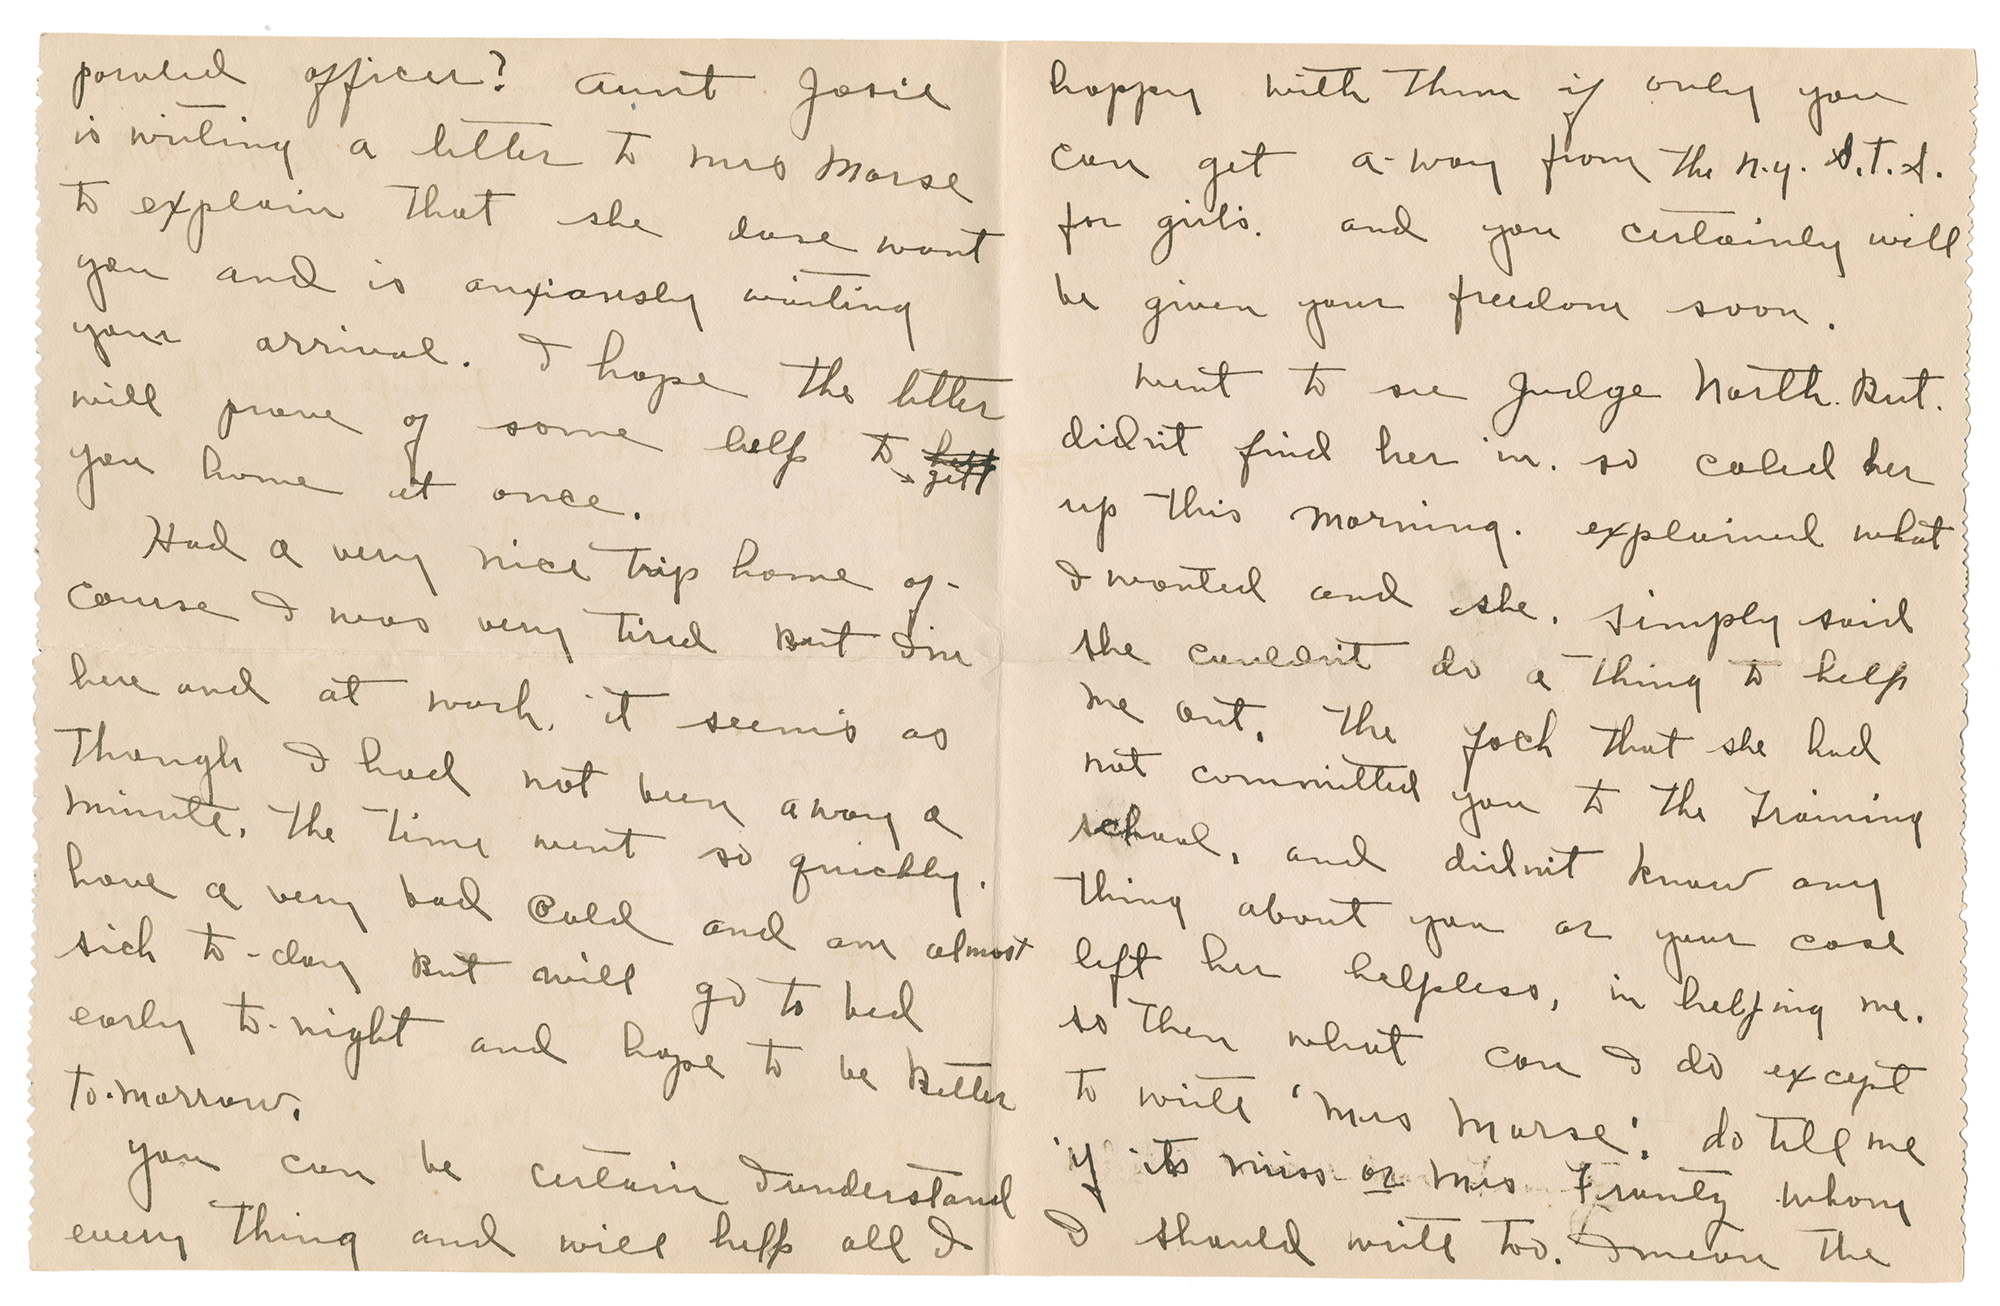 paroled officer? Aunt Josie
is writing a letter to Mrs Morse
to explain that she dose want
you and is anxiously waiting
your arrival. I hope the letter
will prove of some help to gett
you home at once.
Had a very nice trip home of-
course I was very tired But I'm
here and at work. it seems as
though I had not been away a
minute. the time went so quickly.
have a very bad Cold and am almost
sick to-day But will go to bed
early to-night and hope to be Better
to-morrow.
you can be certain I understand
every thing and will help all I
happy with them if only you
can get a-way from the N.Y. S.T.S.
for girls. and you certainly will
be given your freedom soon.
went to see Judge North. But.
didn't find her in. so caled her
up this morning. explained what
I wanted and she. simply said
she couldn't do a thing to help
me out. the fack that she had
not committed you to the Training
school, and didn't know any
thing about you or your case
left her helpless, in helping me.
so then what can I do except
to write 'Mrs Morse'. do tell me
if its miss or mrs Frantz whom
I should write too. I mean the